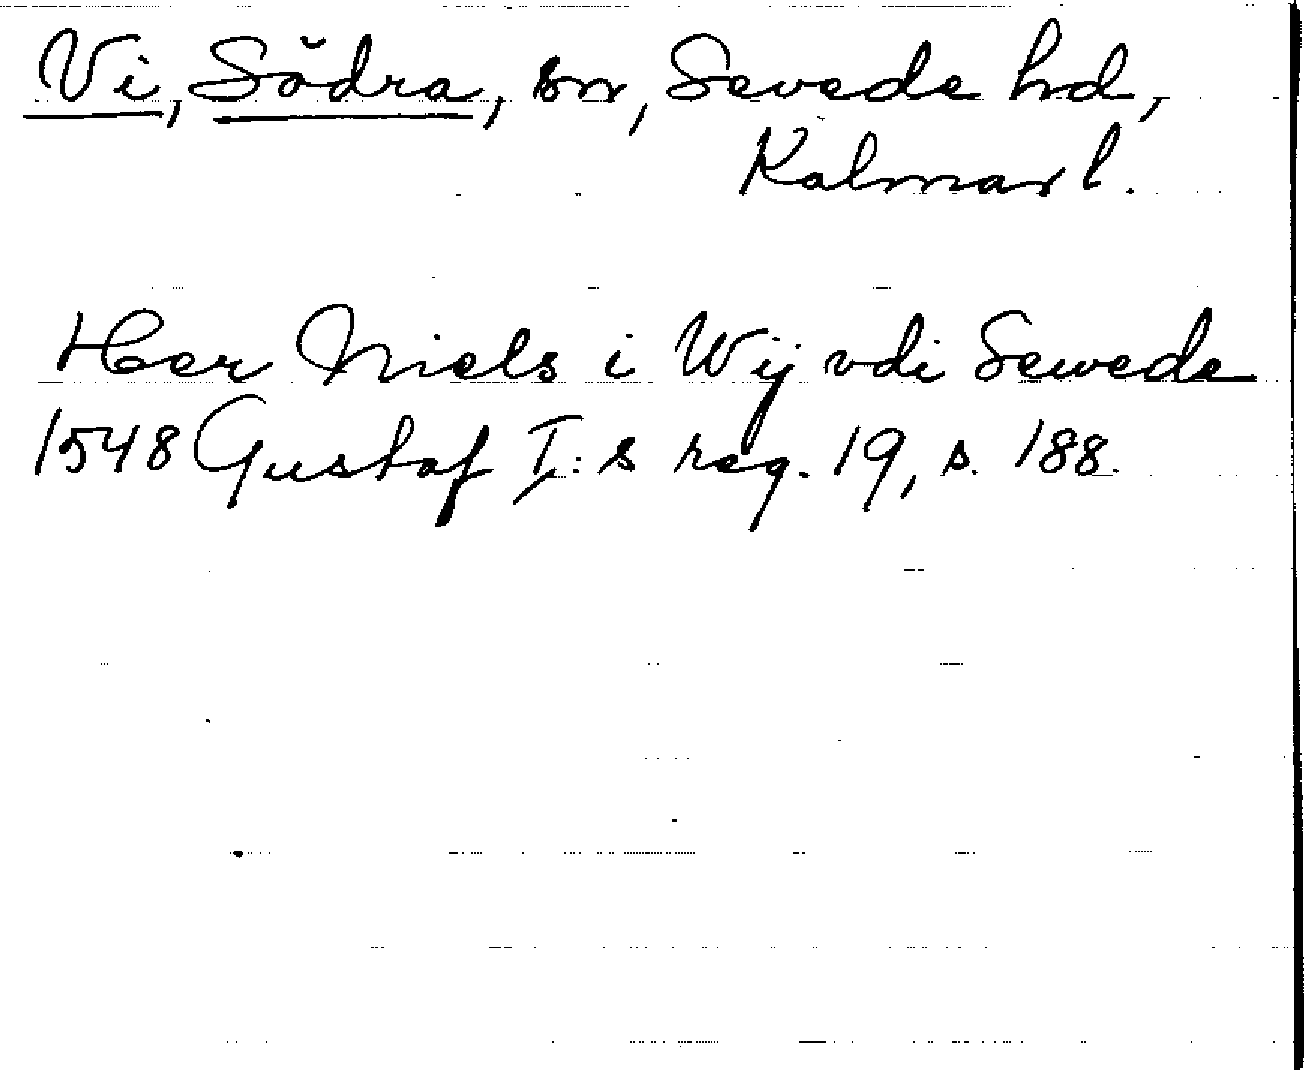 Vi, Södra, sn, Sevede hd,
Kalmar l.
Her Niels i Wij vdi Sewede
1548 Gustaf I:s reg. 19, s. 188.